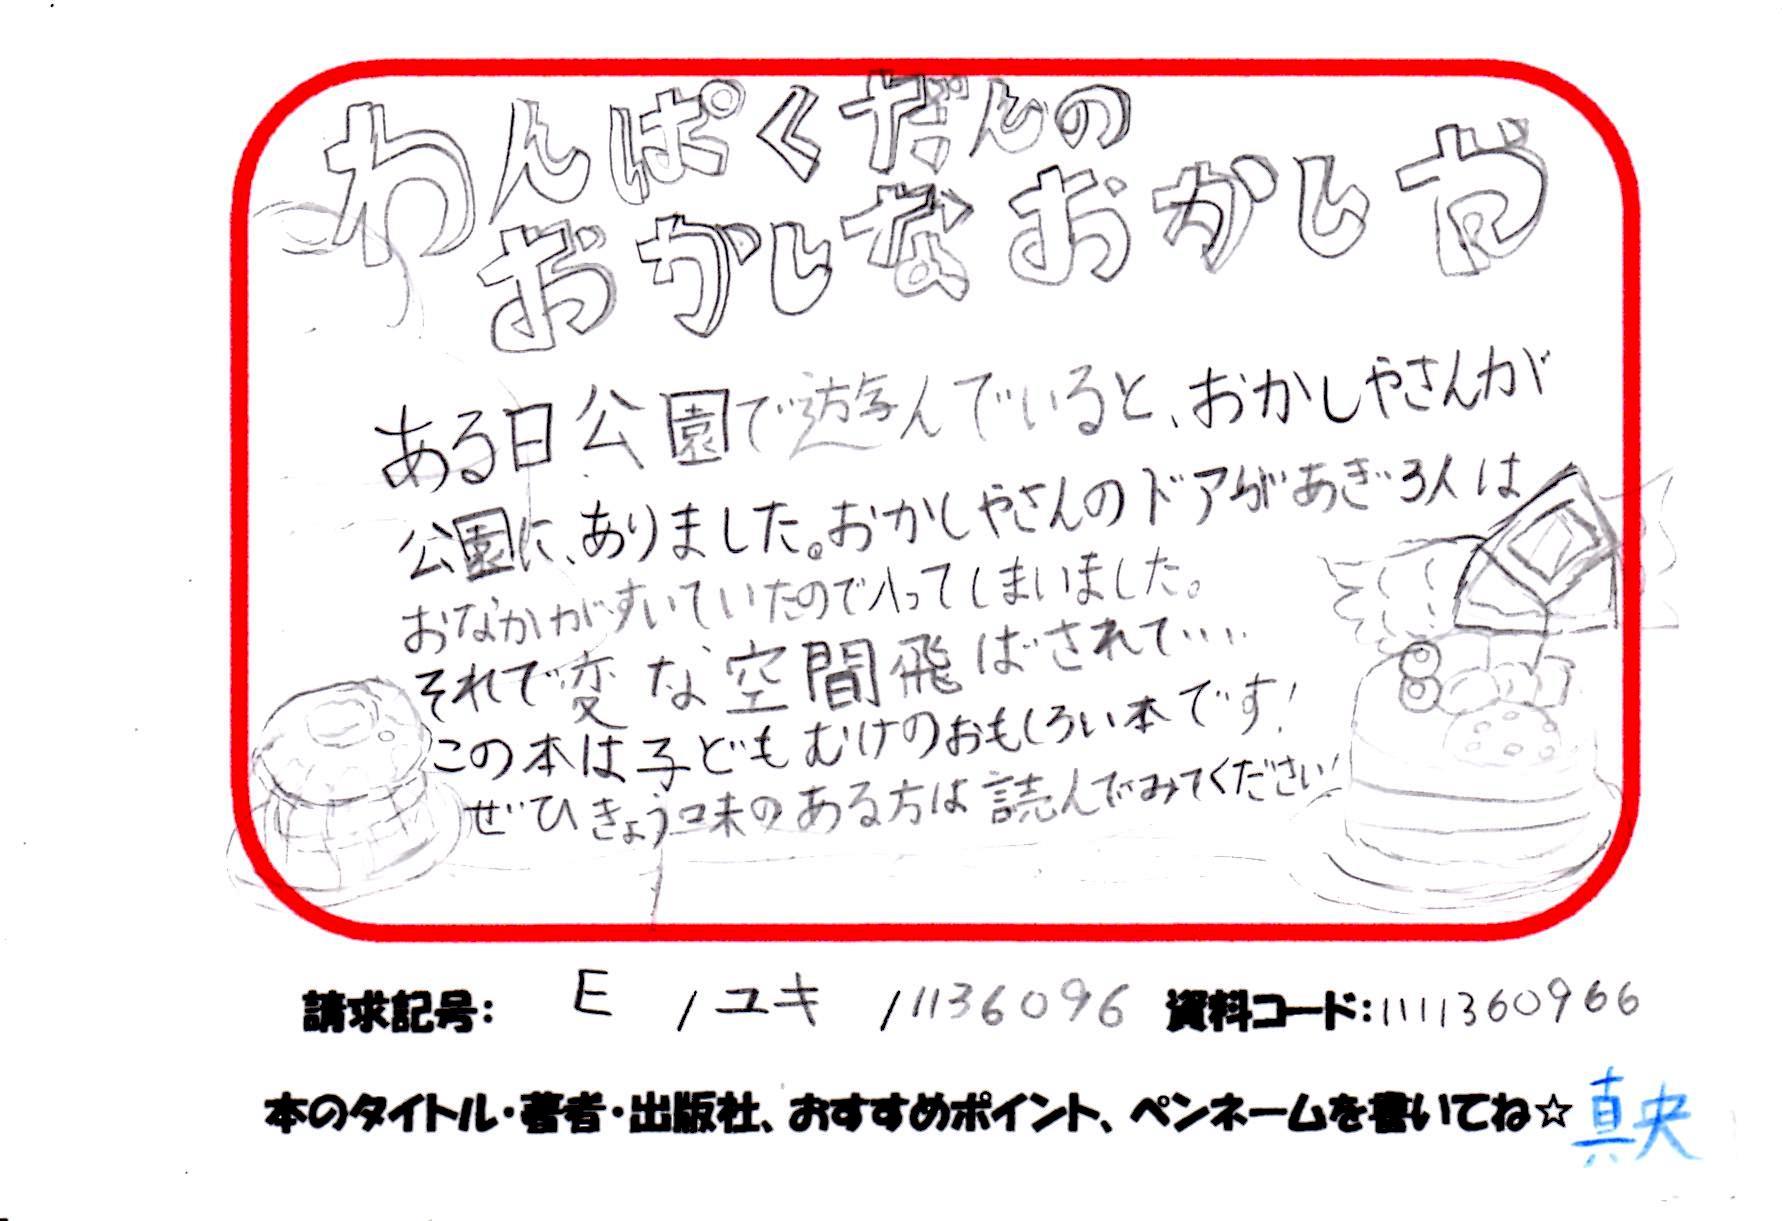 わんぱくだんの
おかしなおかしや
ある日公園で遊んでいると、おかしやさんが
公園に、ありました。おかしやさんのドアがあぎ3人は
おなかがすいていたので入ってしまいました。
それで変な空間飛ばされて‥‥
この本は子どもむけのおもしろい本です!
ぜひきょう味のある方は読んでみてください!
請求記号: E /ユキ /1136096 資料コード:1111360966
本のタイトル・著者・出版社、おすすめポイント、ペンネームを書いてね☆ 真央